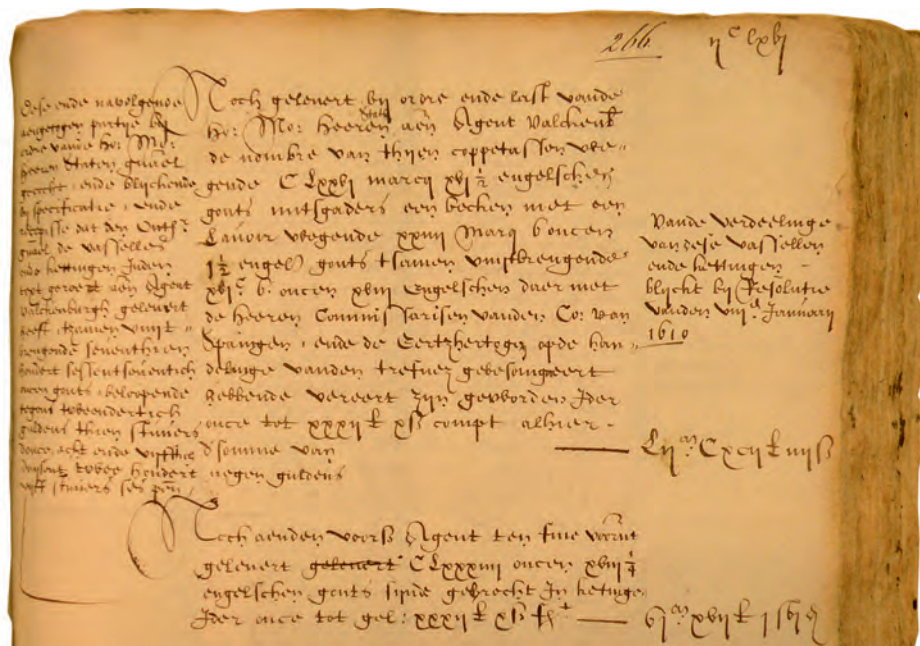 266
ijᶜ lxvj
Dese ende navolgende
aengetogen partije bij
ordre vande Ho: Mo:
heeren Staten
ende blijckende
bij specificatie ende
recepisse dat den
de vasselles
ende kettingen inden
text geroert aen Agent
Valckenburgh gelevert
heeft tsamen uuyt-
brengende seventhien
hondert sessentseventich
oncen gouts beloopende
tegens tweendertich
guldens thien stuivers
donce acht ende vijfftich
duysent twee hondert negen guldens
vijff stuivers ses pen.
Noch gelevert bij ordre ende last vande
Ho: Mo: heeren Staten aen Agent Valckenb.
de nombre van thien coppetassen we-
gende C Lxxvj marcq xvj ½ engelschen
gouts mitsgaders een becken met een
Lavoir wegende xxiiij Marq 6 oncen
1½ engels gouts tsamen uuytbrengende
xvjᶜ oncen xviij Engelschen daer met
de heeren Commissarisen vanden Co: van
Spaingen, ende de Eertzhertogen opde han-
delinge vanden trefves gebesoingeert
hebbende vereert zijn geworden Ider
once tot xxxij £ xß compt alhier -
d'somme van
Vande verdeelinge
van dese vassellen
ende kettingen
blijckt bij Resolutie
vanden viijᵉ January
1610
Lijᵐ Cxcij £ iiijß
Noch aenden voorß Agent ten fine voorut
gelevert gelevert CLxxxiiij oncen xviij ¼
engelschen gouts sijnde gebrocht In ketinge
Ider once tot gel: xxxij £ xß
xvij £